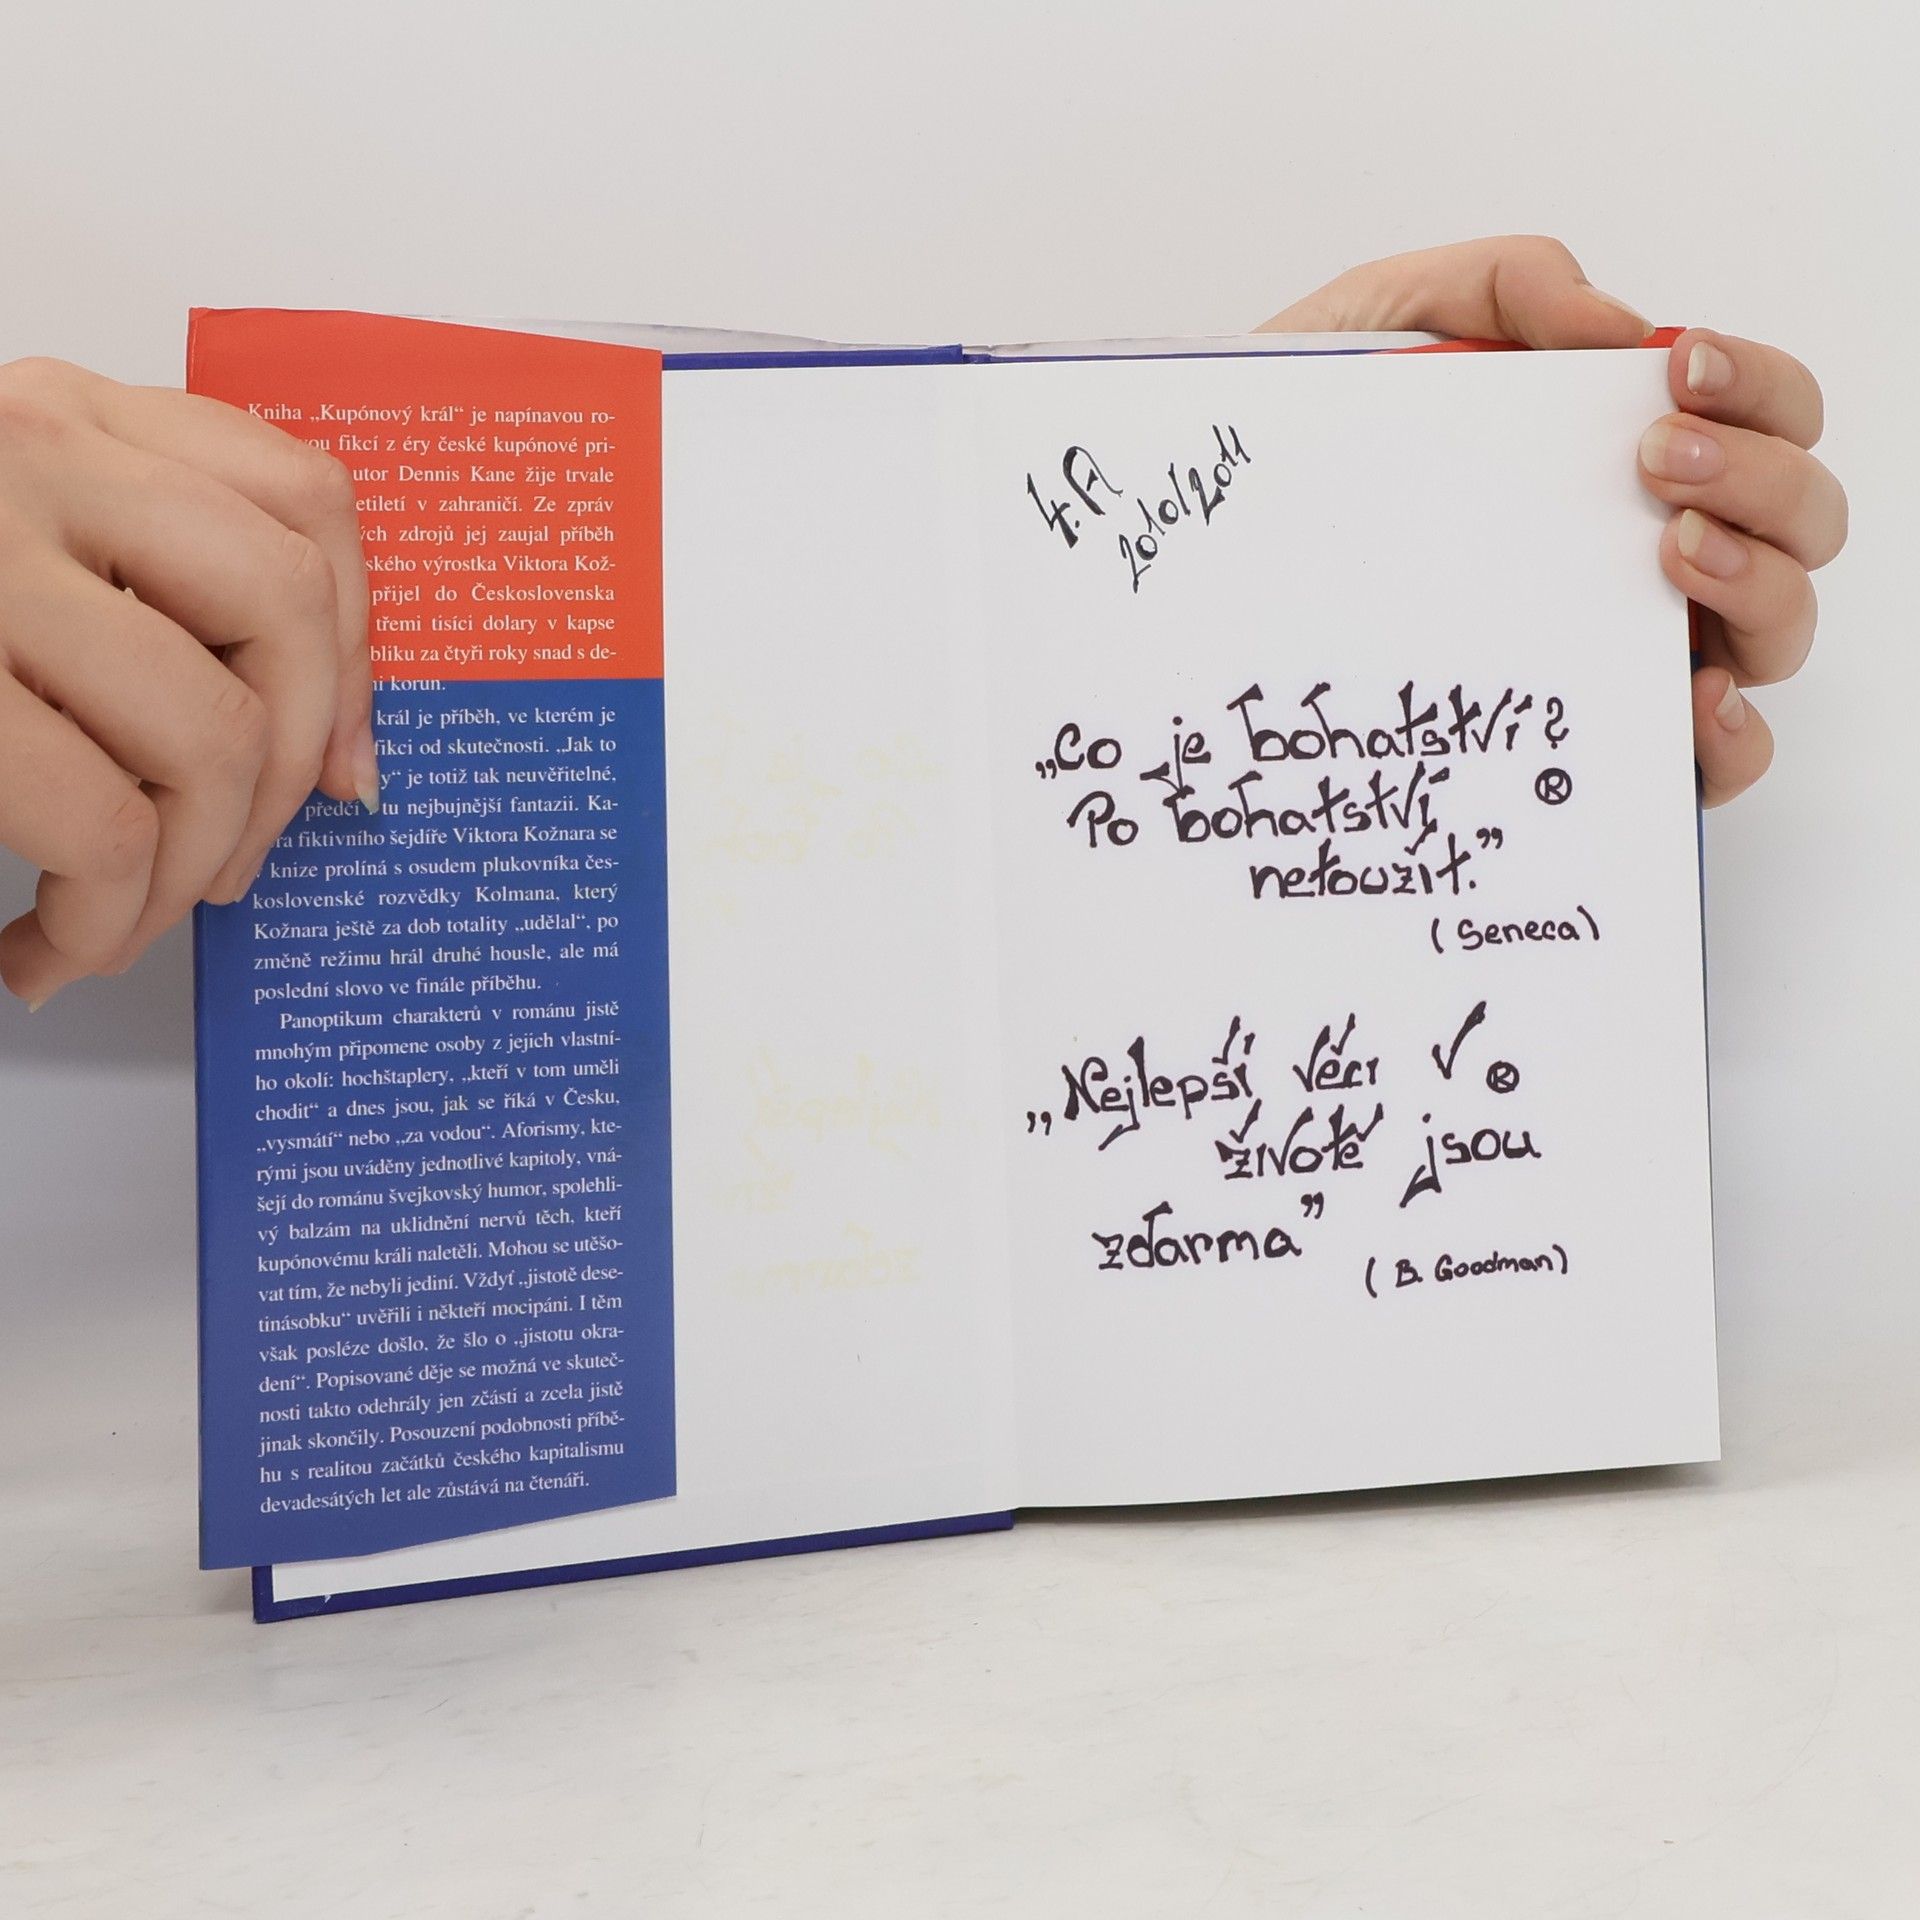 Kniha „Kupónový král“ je napínavou ro-
fikcí z éry české kupónové pri-
Dennis Kane žije trvale
v zahraničí. Ze zpráv
zdrojů jej zaujal příběh
výrostka Viktora Kož-
přijel do Československa
třemi tisíci dolary v kapse
za čtyři roky snad s de-
korun.
král je příběh, ve kterém je
fikci od skutečnosti. „Jak to
je totiž tak neuvěřitelné,
předčí i tu nejbujnější fantazii. Ka-
fiktivního šejdíře Viktora Kožnara se
v knize prolíná s osudem plukovníka čes-
koslovenské rozvědky Kolmana, který
Kožnara ještě za dob totality „udělal“, po
změně režimu hrál druhé housle, ale má
poslední slovo ve finále příběhu.
Panoptikum charakterů v románu jistě
mnohým připomene osoby z jejich vlastní-
ho okolí: hochštaplery, „kteří v tom uměli
chodit“ a dnes jsou, jak se říká v Česku,
„vysmátí“ nebo „za vodou“. Aforismy, kte-
rými jsou uváděny jednotlivé kapitoly, vná-
šejí do románu švejkovský humor, spolehli-
vý balzám na uklidnění nervů těch, kteří
kupónovému králi naletěli. Mohou se utěšo-
vat tím, že nebyli jediní. Vždyť „jistotě dese-
tinásobku“ uvěřili i někteří mocipáni. I těm
však posléze došlo, že šlo o „jistotu okra-
dení“. Popisované děje se možná ve skuteč-
nosti takto odehrály jen zčásti a zcela jistě
jinak skončily. Posouzení podobnosti příbě-
hu s realitou začátků českého kapitalismu
devadesátých let ale zůstává na čtenáři.
4.A
2010/2011
„Co je bohatství?
Po bohatství ®
netoužit.”
(Seneca)
„Nejlepší věci v ®
životě jsou
zdarma”
(B. Goodman)